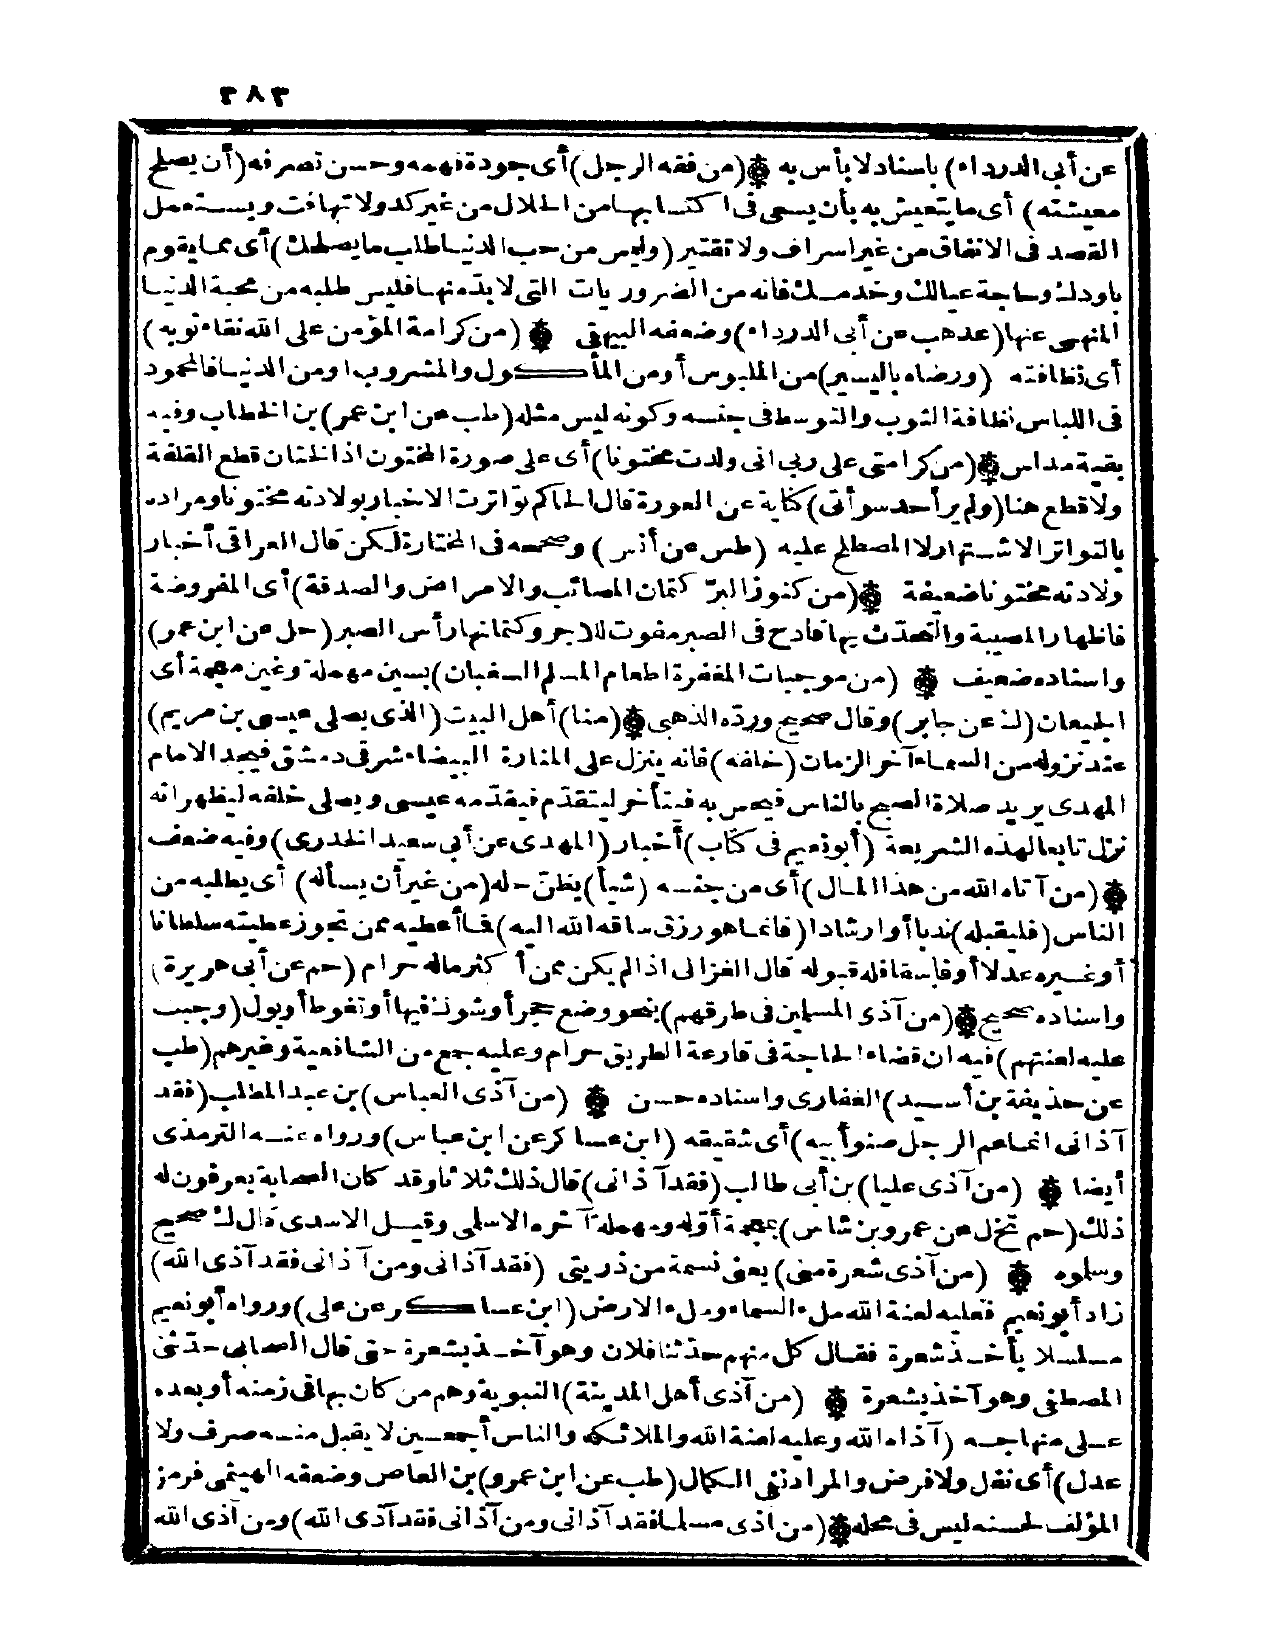 ٣٨٣
عن أبى الدرداء) باسناد لا بأس به ۞ (من فقه الرجل) أى جودة فهمه وحسن تصرفه (أن يصلح
معيشته) أى ما يتعيش به بأن يسعى فى اكتسابها من الحلال من غير كد ولا تهافت ويستعمل
القصد فى الانفاق من غير اسراف ولا تقتير (وليس من حب الدنيا طلب ما يصلحك) أى مما يقوم
بأودك وحاجة عيالك وخدمك فانه من الضروريات التى لا بدّ منها فليس طلبه من محبة الدنيا
المنهى عنها (عد هب عن أبى الدرداء) وضعفه البيهقى ۞ (من كرامة المؤمن على الله نقاء ثوبه)
أى نظافته (ورضاه باليسير) من الملبوس أو من المأكول والمشروب او من الدنيا فالمحمود
فى اللباس نظافة الثوب والتوسط فى جنسه وكونه لبس مثله (طب عن ابن عمر) بن الخطاب وفيه
بقية مدلس ۞ (من كرامتى على ربى انى ولدت مختونا) أى على صورة المختون اذ الختان قطع القلفة
ولا قطع هنا (ولم ير أحد سوأتى) كناية عن العورة قال الحاكم تواترت الاخبار بولادته مختونا ومراده
بالتواتر الاشتهار لا المصطلح عليه (طس عن أنس) وصححه فى المختارة لكن قال العراقى أخبار
ولادته مختونا ضعيفة ۞ (من كنوز البرّ كتمان المصائب والامراض والصدقة) أى المفروضة
فاظهار المصيبة والتحدّث بها قادح فى الصبر مفوت للاجر وكتمانها رأس الصبر (حل عن ابن عمر)
واسناده ضعيف ۞ (من موجبات المغفرة اطعام المسلم السغبان) بسين مهملة وغين معجمة أى
الجيعان (ك عن جابر) وقال صحيح وردّه الذهبى ۞ (منا) أهل البيت (الذى يصلى عيسى بن مريم)
عند نزوله من السماء آخر الزمان (خلفه) فانه ينزل على المنارة البيضاء شرقى دمشق فيجد الامام
المهدى يريد صلاة الصبح بالناس فيحس به فيتأخر ليتقدّم فيقدّمه عيسى ويصلى خلفه ليظهر انه
نزل تابعا لهذه الشريعة (أبو نعيم فى كتاب) أخبار (المهدى عن أبى سعيد الخدرى) وفيه ضعف
۞ (من آتاه الله من هذا المال) أى من جنسه (شيأ) يظنّ حله (من غير أن يسأله) أى يطلبه من
الناس (فليقبله) ندبا أو ارشادا (فانما هو رزق ساقه الله اليه) فما أعطيه ممن تجوز عطيته سلطانا
أو غيره عدلا أو فاسقا فله قبوله قال الغزالى اذا لم يكن ممن أكثر ماله حرام (حم عن أبى هريرة)
واسناده صحيح ۞ (من آذى المسلمين فى طرقهم) بنحو وضع حجر أو شوك فيها أو تغوط أو بول (وجبت
عليه لعنتهم) فيه ان قضاء الحاجة فى قارعة الطريق حرام وعليه جمع من الشافعية وغيرهم (طب
عن حذيفة بن أسيد) الغفارى واسناده حسن ۞ (من آذى العباس) بن عبد المطلب (فقد
آذانى انما عم الرجل صنو أبيه) أى شقيقه (ابن عساكر عن ابن عباس) ورواه عنه الترمذى
أيضا ۞ (من آذى عليا) بن أبى طالب (فقد آذانى) قال ذلك ثلاثا وقد كان الصحابة يعرفون له
ذلك (حم تخ ل عن عمرو بن شاس) بمعجمة أوّله ومهملة آخره الاسلمى وقيل الاسدى قال ك صحيح
وسلموه ۞ (من آذى شعرة منى) يعنى نسمة من ذريتى (فقد آذانى ومن آذانى فقد آذى الله)
زاد أبو نعيم فعليه لعنة الله ملء السماء وملء الارض (ابن عساكر عن على) ورواه أبو نعيم
مسلسلا بأخذ شعرة فقال كل منهم حدّثنا فلان وهو آخذ بشعرة حتى قال الصحابى حدّثنى
المصطفى وهو آخذ بشعرة ۞ (من آذى أهل المدينة) النبوية وهم من كان بها فى زمنه أو بعده
على منهاجه (آذاه الله وعليه لعنة الله والملائكة والناس أجمعين لا يقبل منه صرف ولا
عدل) أى نفل ولا فرض والمراد نفى الكمال (طب عن ابن عمرو) بن العاص وضعفه الهيثمى فرمز
المؤلف لحسنه ليس فى محله ۞ (من اذى مسلما فقد آذانى ومن آذانى فقد آذى الله) ومن آذى الله